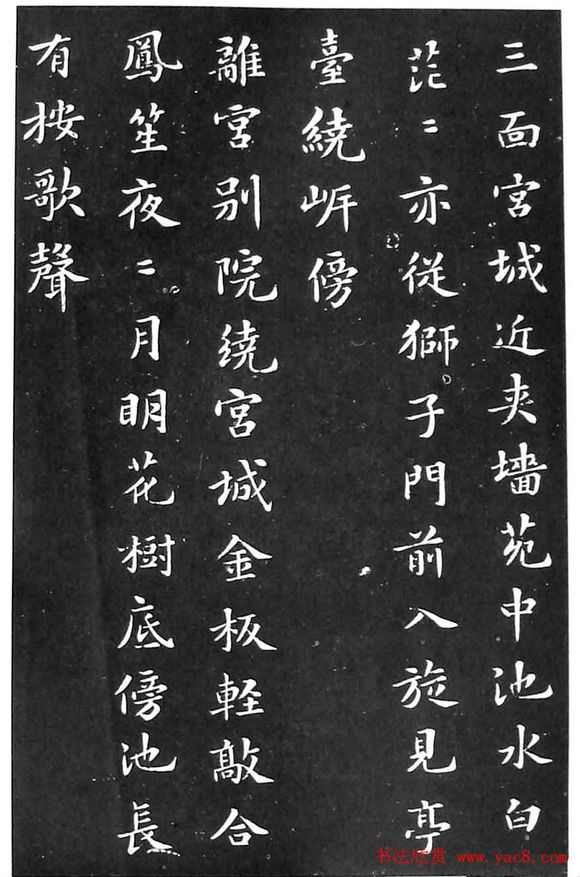 三面宮城近夾墻苑中池水白
茫〻亦従獅子門前入旋見亭
臺繞岍傍
離宮別院繞宮城金板軽敲合
鳳笙夜〻月明花樹底傍池長
有按歌聲
书法欣赏 www.yac8.com